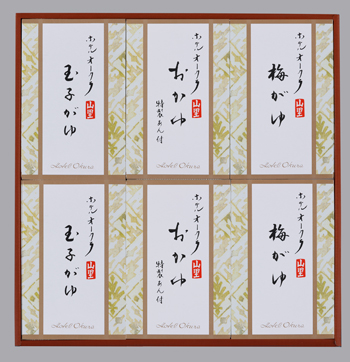 ホテルオークラ
山里
玉子がゆ
Hotel Okura
ホテルオークラ
山里
おかゆ
特製あん付
Hotel Okura
ホテルオークラ
山里
梅がゆ
Hotel Okura
ホテルオークラ
山里
玉子がゆ
Hotel Okura
ホテルオークラ
山里
おかゆ
特製あん付
Hotel Okura
ホテルオークラ
山里
梅がゆ
Hotel Okura